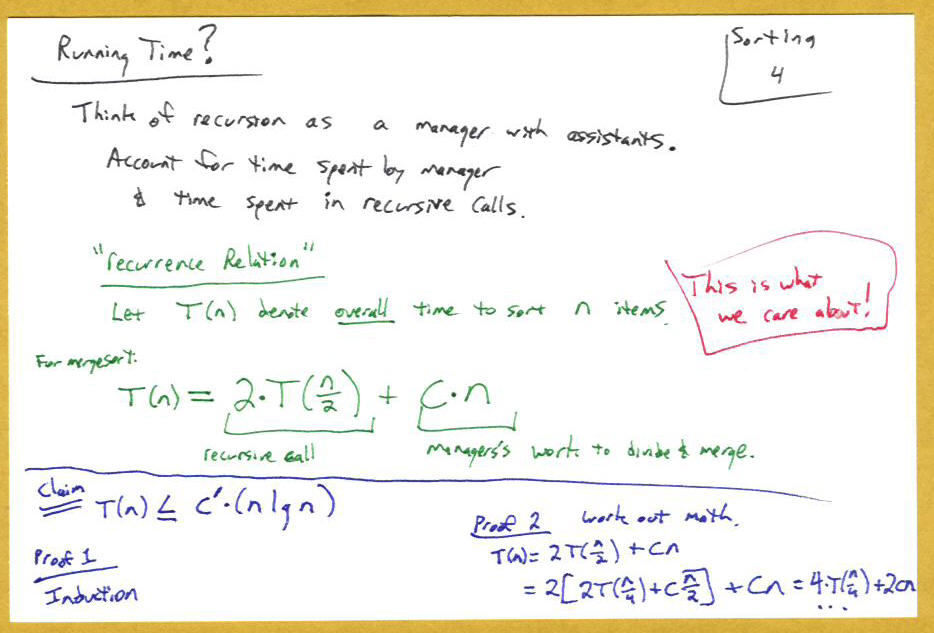 Running Time?
Sorting
4
Think of recursion as a manager with assistants.
Account for time spent by manager
& time spent in recursive calls.
"recurrence Relation"
Let T(n) denote overall time to sort n items.
This is what
we care about!
For mergesort:
T(n) = 2·T(n/2) + C·n
recursive call
managers's work to divide & merge.
Claim
T(n) ≤ c'·(n lg n)
Proof 1
Induction
Proof 2 work out math.
T(n) = 2T(n/2) + cn
= 2[2T(n/4)+c n/2] + cn = 4·T(n/4)+2cn
...